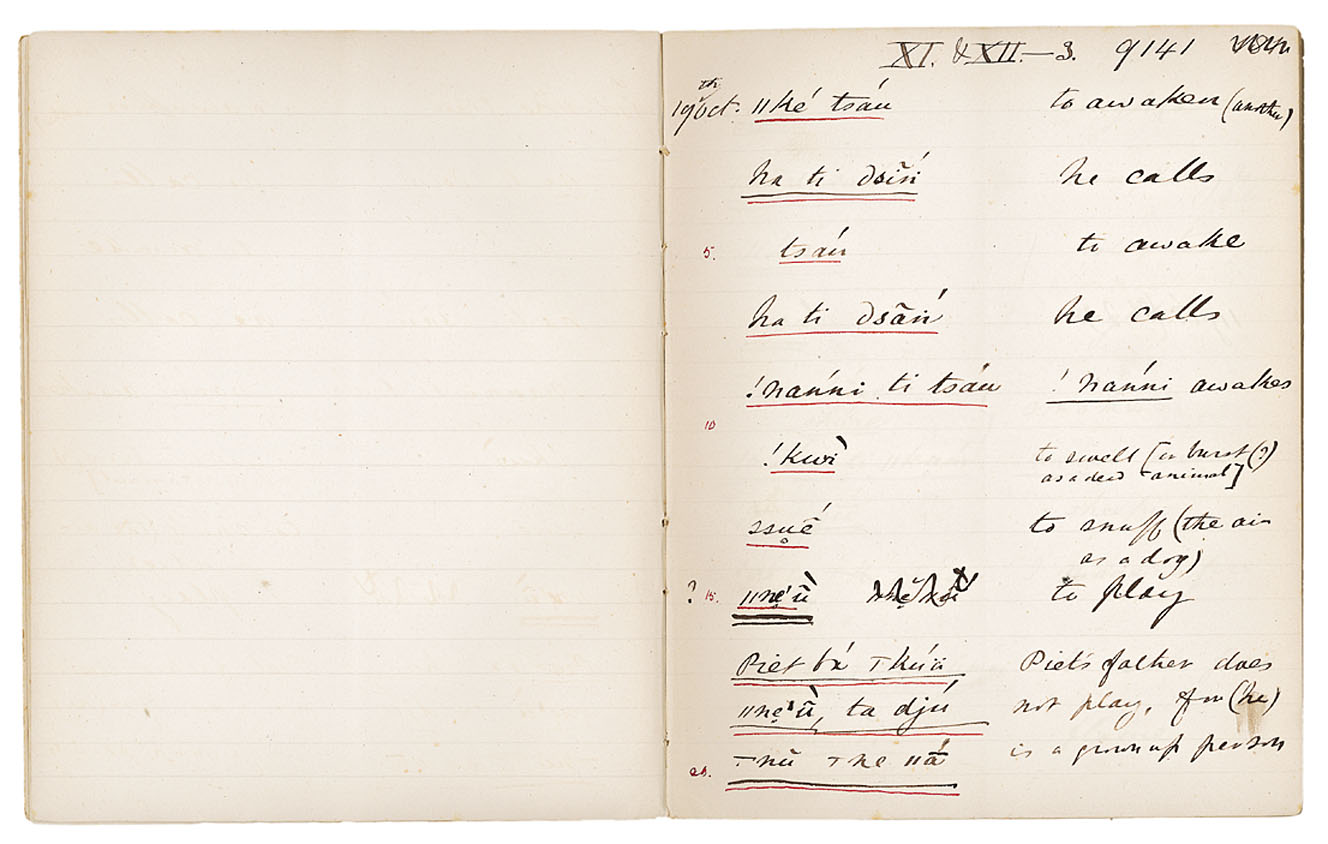 XI. & XII.—3. 9141
19th Oct. ǁké tsáu to awaken (another)
ha ti he calls
5. tsáu to awake
ha ti he calls
!nánni ti tsáu !nánni awakes
10
!kwì to swell [or burst (?)
as a dead animal]
to snuff (the air
as a dog)
? 15. to play
Piet bá Piet's father does
ta djú not play, for (he)
20. is a grown up person